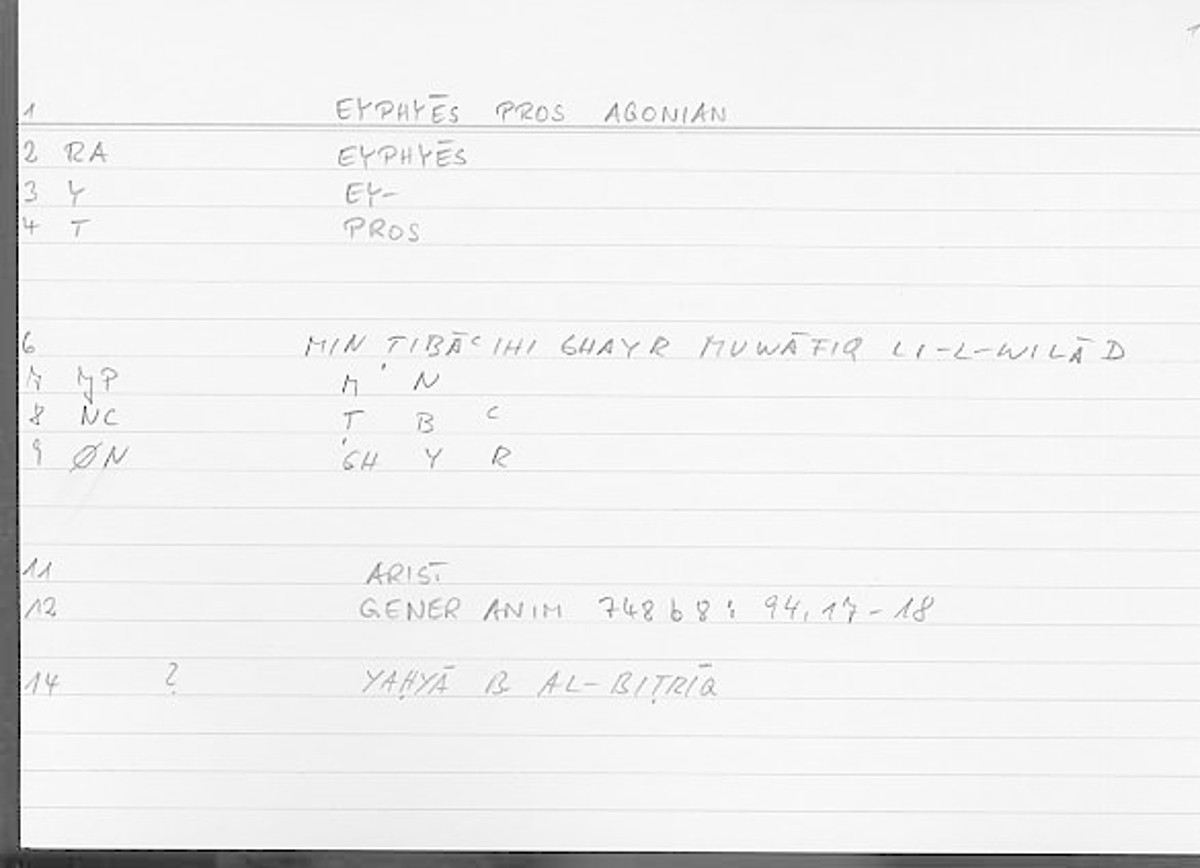 1
1 EYPHYĒS PROS AGONIAN
2 RA EYPHYĒS
3 Y EY-
4 T PROS
6 MIN ṬIBĀCIHI GHAYR MUWĀFIQ LI-L-WILĀD
7 JP M N
8 NC Ṭ B C
9 ØN GH Y R
11 ARIST
12 GENER ANIM 748 b 8 : 94,17-18
14 ? YAḤYĀ B AL-BIṬRĪQ